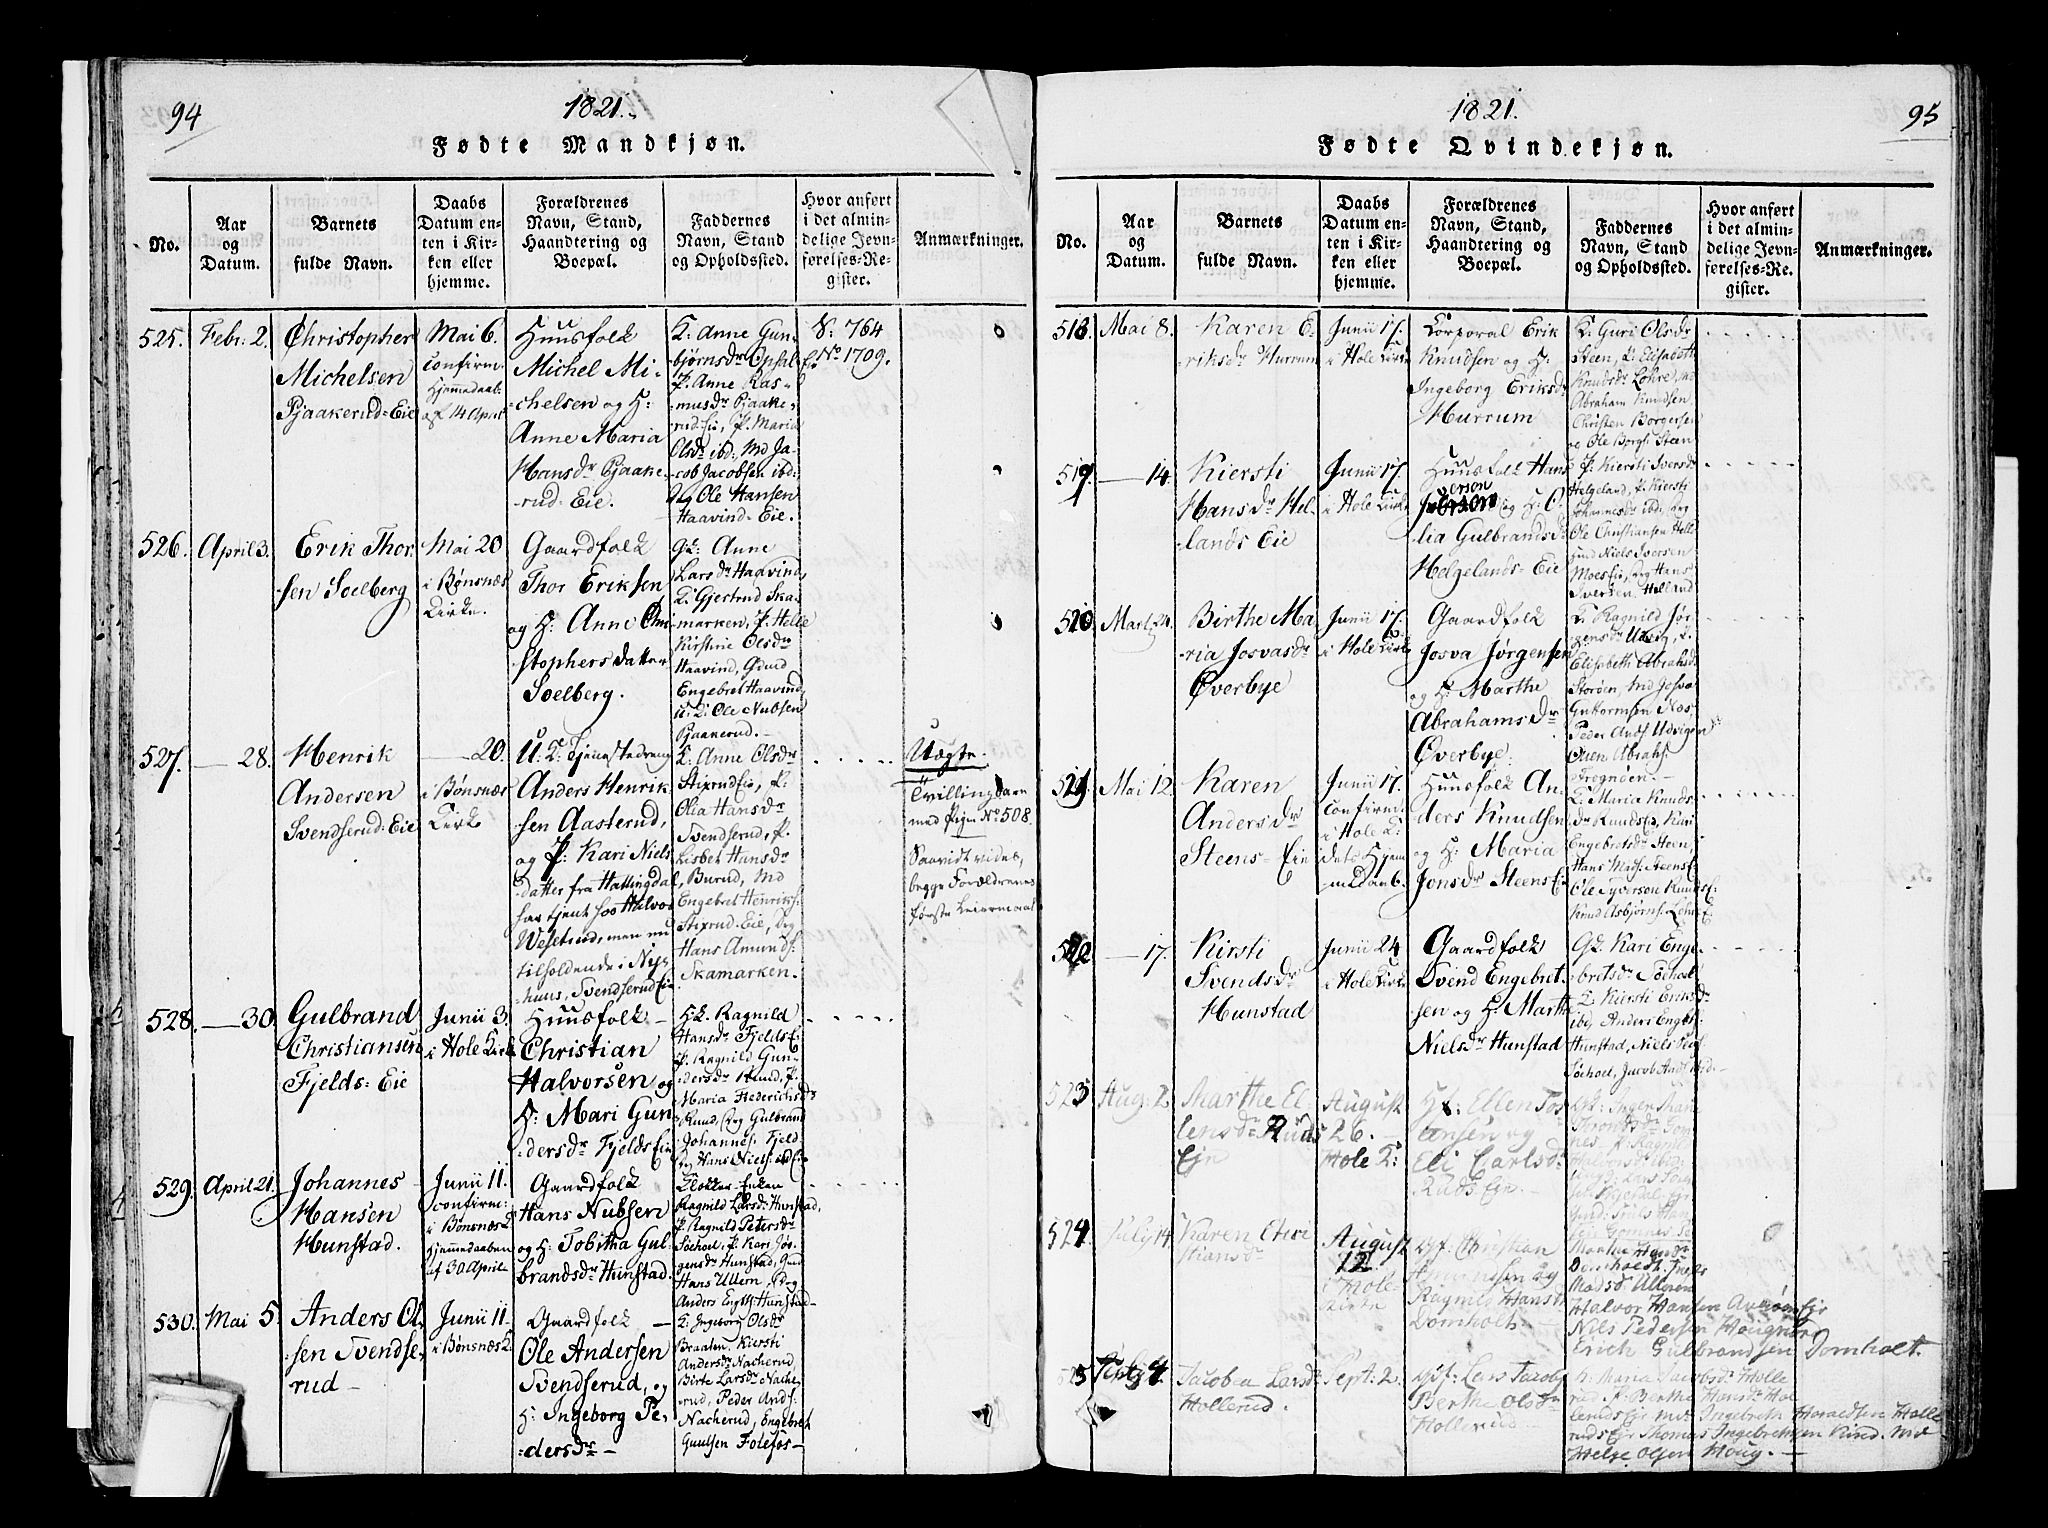 94
1821.
Fødte Mandkjøn.
No.
Aar
og
Datum.
Barnets
fulde Navn.
Daabs
Datum en-
ten i Kir-
ken eller
hjemme.
Forældrenes
Navn, Stand,
Haandtering og
Boepæl.
Faddernes
Navn, Stand
og Opholdssted.
Hvor anført
i det almin-
delige Jevn-
førelses-Re-
gister.
Anmærkninger.
525.
Febr: 2.
Christopher
Michelsen
Pjaakerud-Eie
Mai 6.
confirm.
Hjemmedaab.
af 14 April
Huusfolk
Michel Mi-
chelsen og H:
Anne Maria
Hansdr Pjaake-
rud-Eie.
K: Anne Gun-
bjørnsdr Opsal
P. Anne Ras-
musdr Pjaake-
rud-Eie, P. Maria
Olsdr ibd: Md Ja-
cob Jacobsen ibd:
og Ole Hansen
Haavind-Eie.
No 1709.
526.
April 3.
Erik Thor-
sen Soelberg
Mai 20
i Bønsnæs
Kirke.
Gaardfolk
Thor Eriksen
og H: Anne Chri-
stophersdatter
Soelberg.
Gk: Anne
Larsdr Haavind,
K: Gjertrud Ska-
marken, P. Helle
Kirstine Olsdr
Haavind, Gdmd
Engebret Haavind,
u: K: Ole Nubsen
Pjaakerud.
527.
28.
Henrik
Andersen
Svendserud-Eie
20.
i Bønsnæs
Kirke
U: K: Tjenestedreng
Anders Henrik-
sen Aasterud,
og P: Kari Niels-
datter fra Hallingdal,
har tjent hos Halvor
Weselrud, men nu
tilholdende i Nye-
huus, Svendserud Eie
K: Anne Olsdr
Stixrud Eie, P.
Olia Hansdr
Svendserud, P.
Lisbet Hansdr
Burud, Md
Engebret Henriks:
Stixrud-Eie, Drg
Hans Amunds:
Skamarken.
Uægte.
Tvillingbarn
med Pign No 508.
Saavidt vides,
begge Forældrenes
første Leiermaal
528.
30.
Gulbrand
Christiansen
Fjelds-Eie
Junii 3.
i Hole Kirke
Huusfolk
Christian
Halvorsen og
H: Mari Gun-
dersdr Fjelds Eie
Hk. Ragnild
Hansdr Fjelds Ei
P. Ragnild Gun-
dersdr Rund, P.
Maria Frederichsdr
Rund, Drg Gulbrand
Johannes: Fjeld-
Drg Hans Niels: ibd Eie
529.
April 21.
Johannes
Hansen
Hunstad.
Junii 11.
confirm:
i Bønsnæs K
Hjemmedaaben
af 30 April
Gaardfolk
Hans Nubsen
og H: Tobitha Gul-
brandsdr Hunstad.
Klokker-Enken
Ragnild Larsdr Hunstad,
P. Ragnild Petersdr
Søehoel, P. Kari Jør-
gensdr Hunstad, Gmd
Hans Ullern, Drg
Anders Engbs: Hunstad
530.
Mai 5.
Anders Ol-
sen Svendse-
rud
Junii 11.
i Bønsnæs K
Gaardfolk
Ole Andersen
Svendserud, og
H: Ingeborg Pe-
dersdr
K: Ingeborg Olsdr
Braaten, Kiersti
Andersdr Nacherud
Birte Larsdr Nache-
rud, Peder Ands:
Nacherud, Engebret
Guulsen Folefos
95
1821.
Fødte Qvindekjøn.
No.
Aar
og
Datum.
Barnets
fulde Navn.
Daabs
Datum en-
ten i Kir-
ken eller
hjemme.
Forældrenes
Navn, Stand,
Haandtering og
Boepæl.
Faddernes
Navn, Stand
og Opholdssted.
Hvor anført
i det almin-
delige Jevn-
førelses-Re-
gister.
Anmærkninger.
518.
Mai 8.
Karen E-
riksdr Hurrum
Junii 17.
i Hole Kirke
Corporal Erik
Knudsen og H:
Ingeborg Eriksdr
Hurrum
K: Guri Olsdr
Steen, K: Elisabeth
Knudsdr Lohre, Md
Abraham Knudsen,
Christen Borgersen
og Ole Borgs: Steen
519
14.
Kiersti
Hansdr Hel-
lands Eie
Junii 17.
i Hole Kirke
Huusfolk Hans
Iverson og H: O-
lia Gulbrandsdr
Helgelands-Eie
P. Kiersti Iversdr
Helgeland, P. Kiersti
Johannesdr ibd, Drg
Ole Christiansen Helle-
Niels Iversen
Moes Eie, Drg Hans
Iversen, Helland
520
Marty 24.
Birthe Ma-
ria Josvasdr
Øverbye
Junii 17.
i Hole Kirke
Gaardfolk
Josva Jørgensen
og H: Marthe
Abrahamsdr
Øverbye.
K: Ragnild Jør-
gensdr Udvig, K.
Elisabeth Abrahsdr
Storøen, Md Josva
Guttormsen Næs
Peder Ands: Udvigen
Oven Abrahs:
Frognøen.
521
Mai 12.
Karen
Andersdr
Steens-Eie
Junii 17.
confirm.
i Hole K:
dets Hjem-
medaab.
Huusfolk An-
ders Knudsen
og H: Maria
Jonsdr Steens Eie
K: Maria Knuds-
dr Runds Ei, Kari
Engebretsdr Steen,
Hans Mats: Steens E.
Ole Syverson Runds E.
Knud Asbjørns: Lohre E
522
17.
Kirsti
Svendsdr
Hunstad
Junii 24
i Hole Kirke
Gaardfolk
Svend Engebret-
sen og H: Marthe
Nielsdr Hunstad
Gk. Kari Enge-
bretsdr Søehoel
K. Kiersti Eriksdr
ibd, Anders Engbs:
Hunstad, Niels
Søehoel, Jacob Ands:
523
Aug: 2.
Marthe El-
lensdr Ruds
Eje
August
26.
Hole K:
Hf: Ellen Tos-
tensen og
Eli Carlsdr
Ruds Eje.
524
July 14
Karen Chri-
stiansdr
August
12.
i Hole
Kirke
Gf. Christian
og
Ragnild Hansdr
Domholt
Marthe Hansdr
Domholt
Madsdr Ullern
Halvor Hansen
Nils Pedersen
Erich Gulbrandsen Domholt.
July 4.
Jacobea Larsdr
Hollerud.
Sept: 2.
Gf: Lars Jacobs
Berthe Olsdr
Hollerud
K: Maria Jacobsdr Holle-
rud P. Berthe Hansdr Hol-
leruds Eje Md: Ingebreth Haraldsen Holle-
ruds Eje Thomas Ingebrethsen Rud. Md
Helge Olsen Houg.